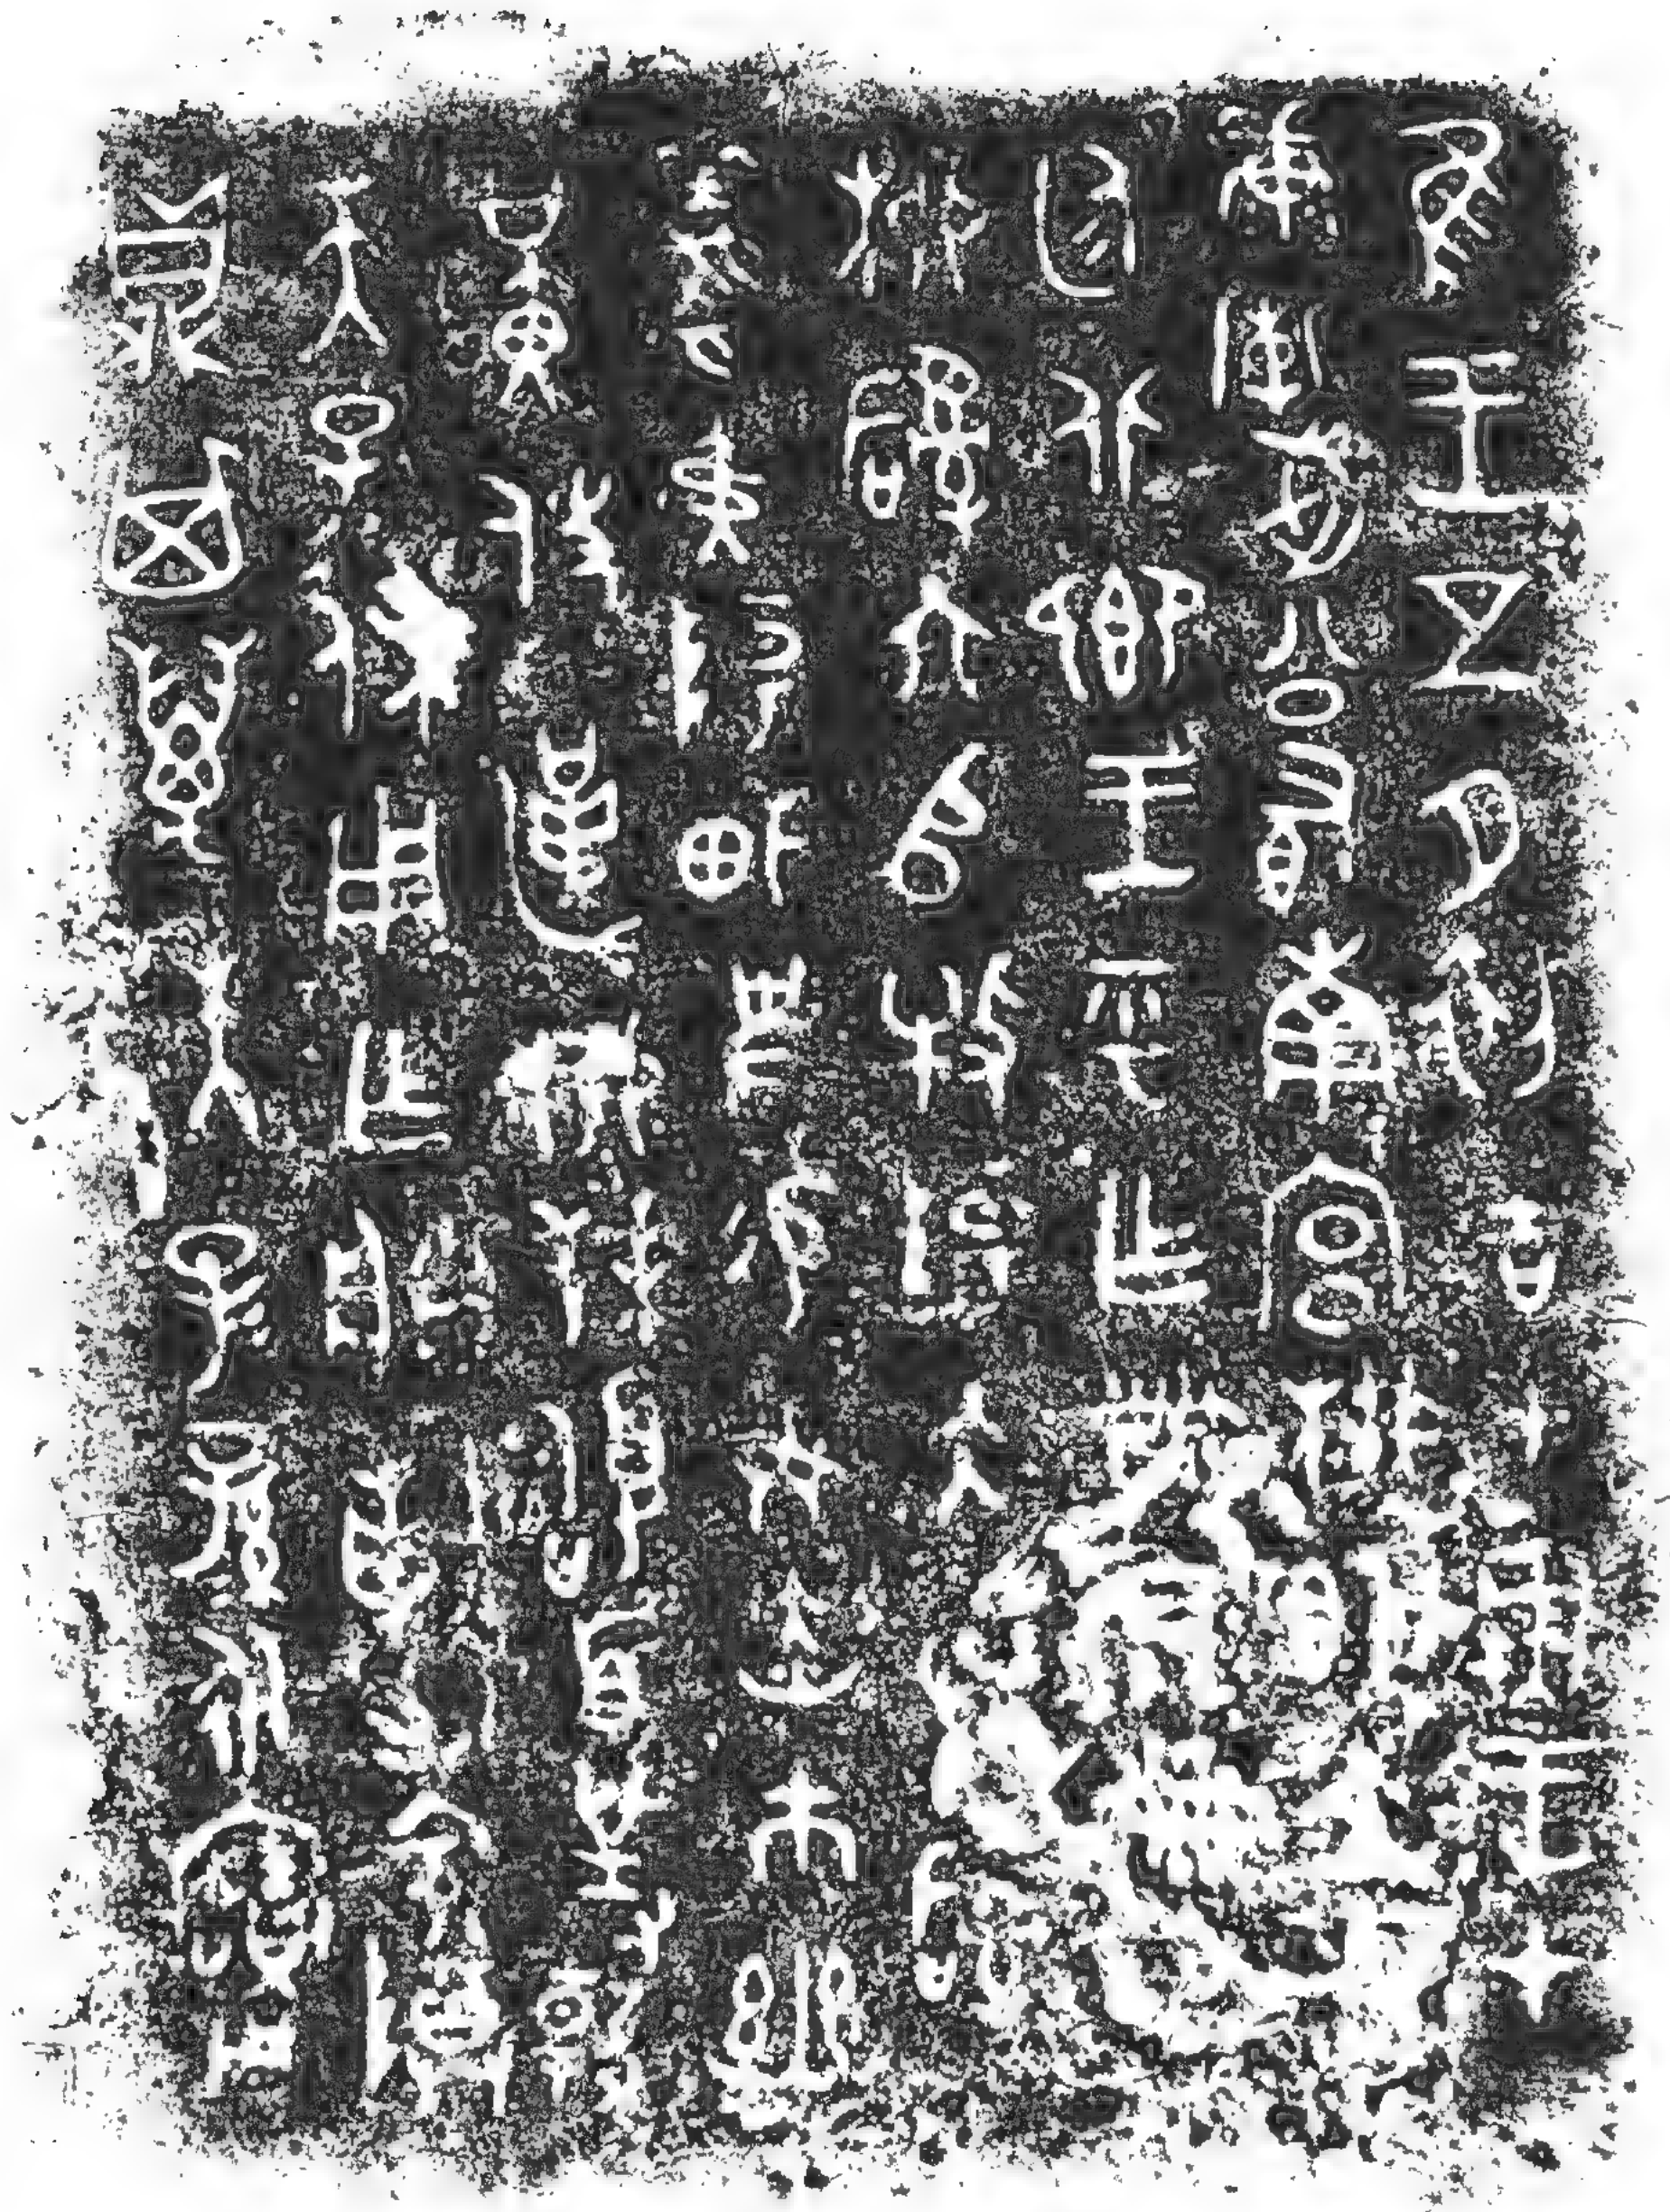 隹王五月初吉甲寅王才
康廟武公有南宮柳即立中
廷北鄉王乎乍冊尹冊令
柳𤔲六𠂤牧陽大
羲夷陽佃史易女赤巿幽
黃攸勒柳拜𩒨首對
天子休用乍朕剌考尊
鼎其萬年子=孫=永寶用